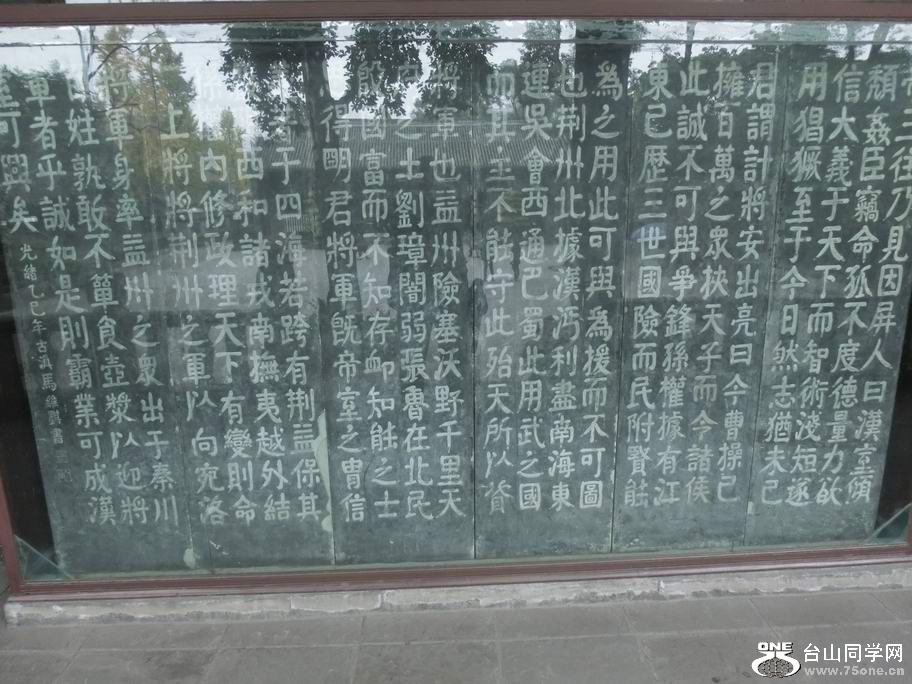 三往乃見因屏人曰漢室傾
頹姦臣竊命孤不度德量力欲
信大義于天下而智術淺短遂
用猖獗至于今日然志猶未已
君謂計將安出亮曰今曹操已
擁百萬之眾挾天子而令諸侯
此誠不可與爭鋒孫權據有江
東已歷三世國險而民附賢能
為之用此可與為援而不可圖
也荊州北據漢沔利盡南海東
連吳會西通巴蜀此用武之國
而其主不能守此殆天所以資
將軍也益州險塞沃野千里天
之土劉璋闇弱張魯在北民
殷國富而不知存卹知能之士
得明君將軍既帝室之胄信
著于四海若跨有荊益保其
西和諸戎南撫夷越外結
內修政理天下有變則命
上將將荊州之軍以向宛洛
將軍身率益州之眾出于秦川
百姓孰敢不簞食壺漿以迎將
軍者乎誠如是則霸業可成漢
室可興矣
光緒乙巳年古滇馬維騏書
ONE 台山同学网
www.75one.cn